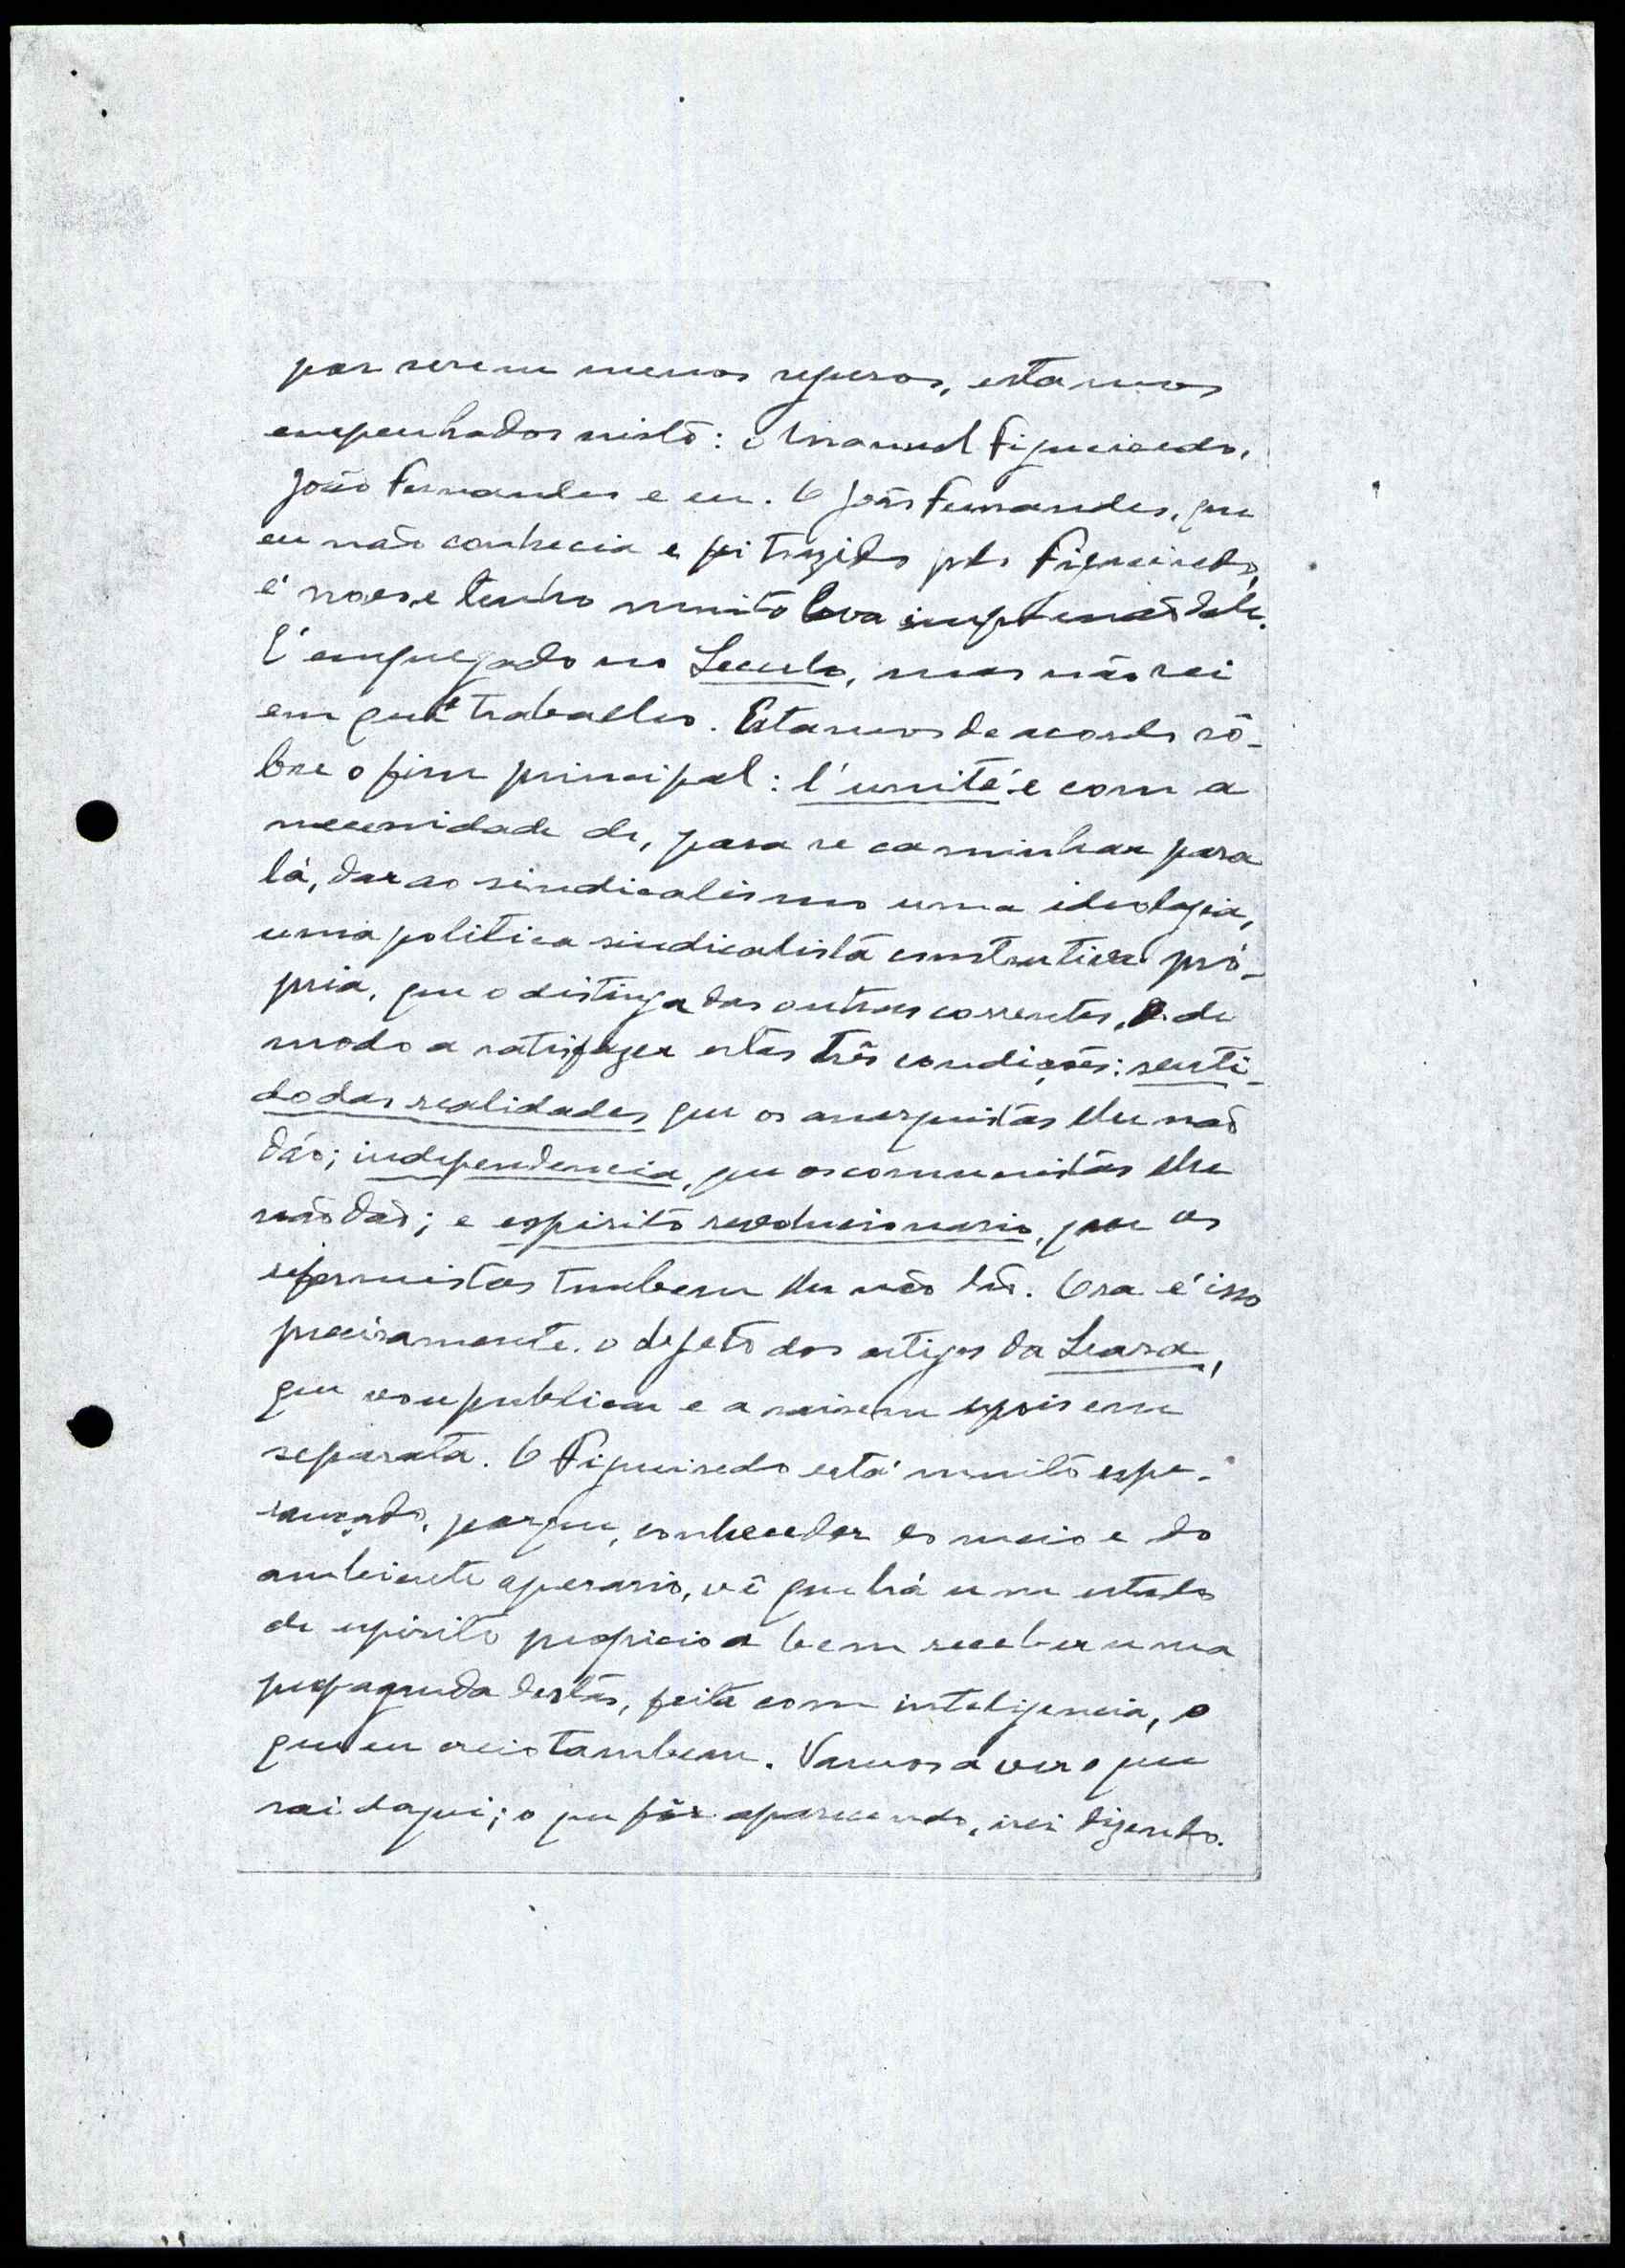 por serem menos seguros, estamos
empenhados nisto: o Manuel Figueiredo,
João Fernandes e eu. O João Fernandes, que
eu não conhecia e foi trazido pelo Figueiredo,
é novo e tenho muito boa impressão dele.
É empregado no Seculo, mas não sei
em que trabalho. Estamos de acordo sô-
bre o fim principal: l'unité: e com a
necessidade de, para se caminhar para
lá, dar ao sindicalismo uma ideologia,
uma politica sindicalista constructiva pró-
pria, que o distinga das outras correntes, e de
modo a satisfazer estas três condições: senti-
do das realidades que os anarquistas lhe não
dão; independencia, que os comunistas lhe
não dão; e espirito revolucionario, que os
reformistas tambem lhe não dão. Ora é isso
precisamente o objeto dos artigos da Seara,
que vou publicar e a sairem depois em
separata. O Figueiredo está muito espe-
rançado, porque, conhecedor do meio e do
ambiente operario, vê que há um estado
de espirito propicio a bem receber uma
propaganda destas, feita com inteligencia, o
que eu creio tambem. Vamos a ver o que
sai daqui; o que fôr aparecendo, irei dizendo.